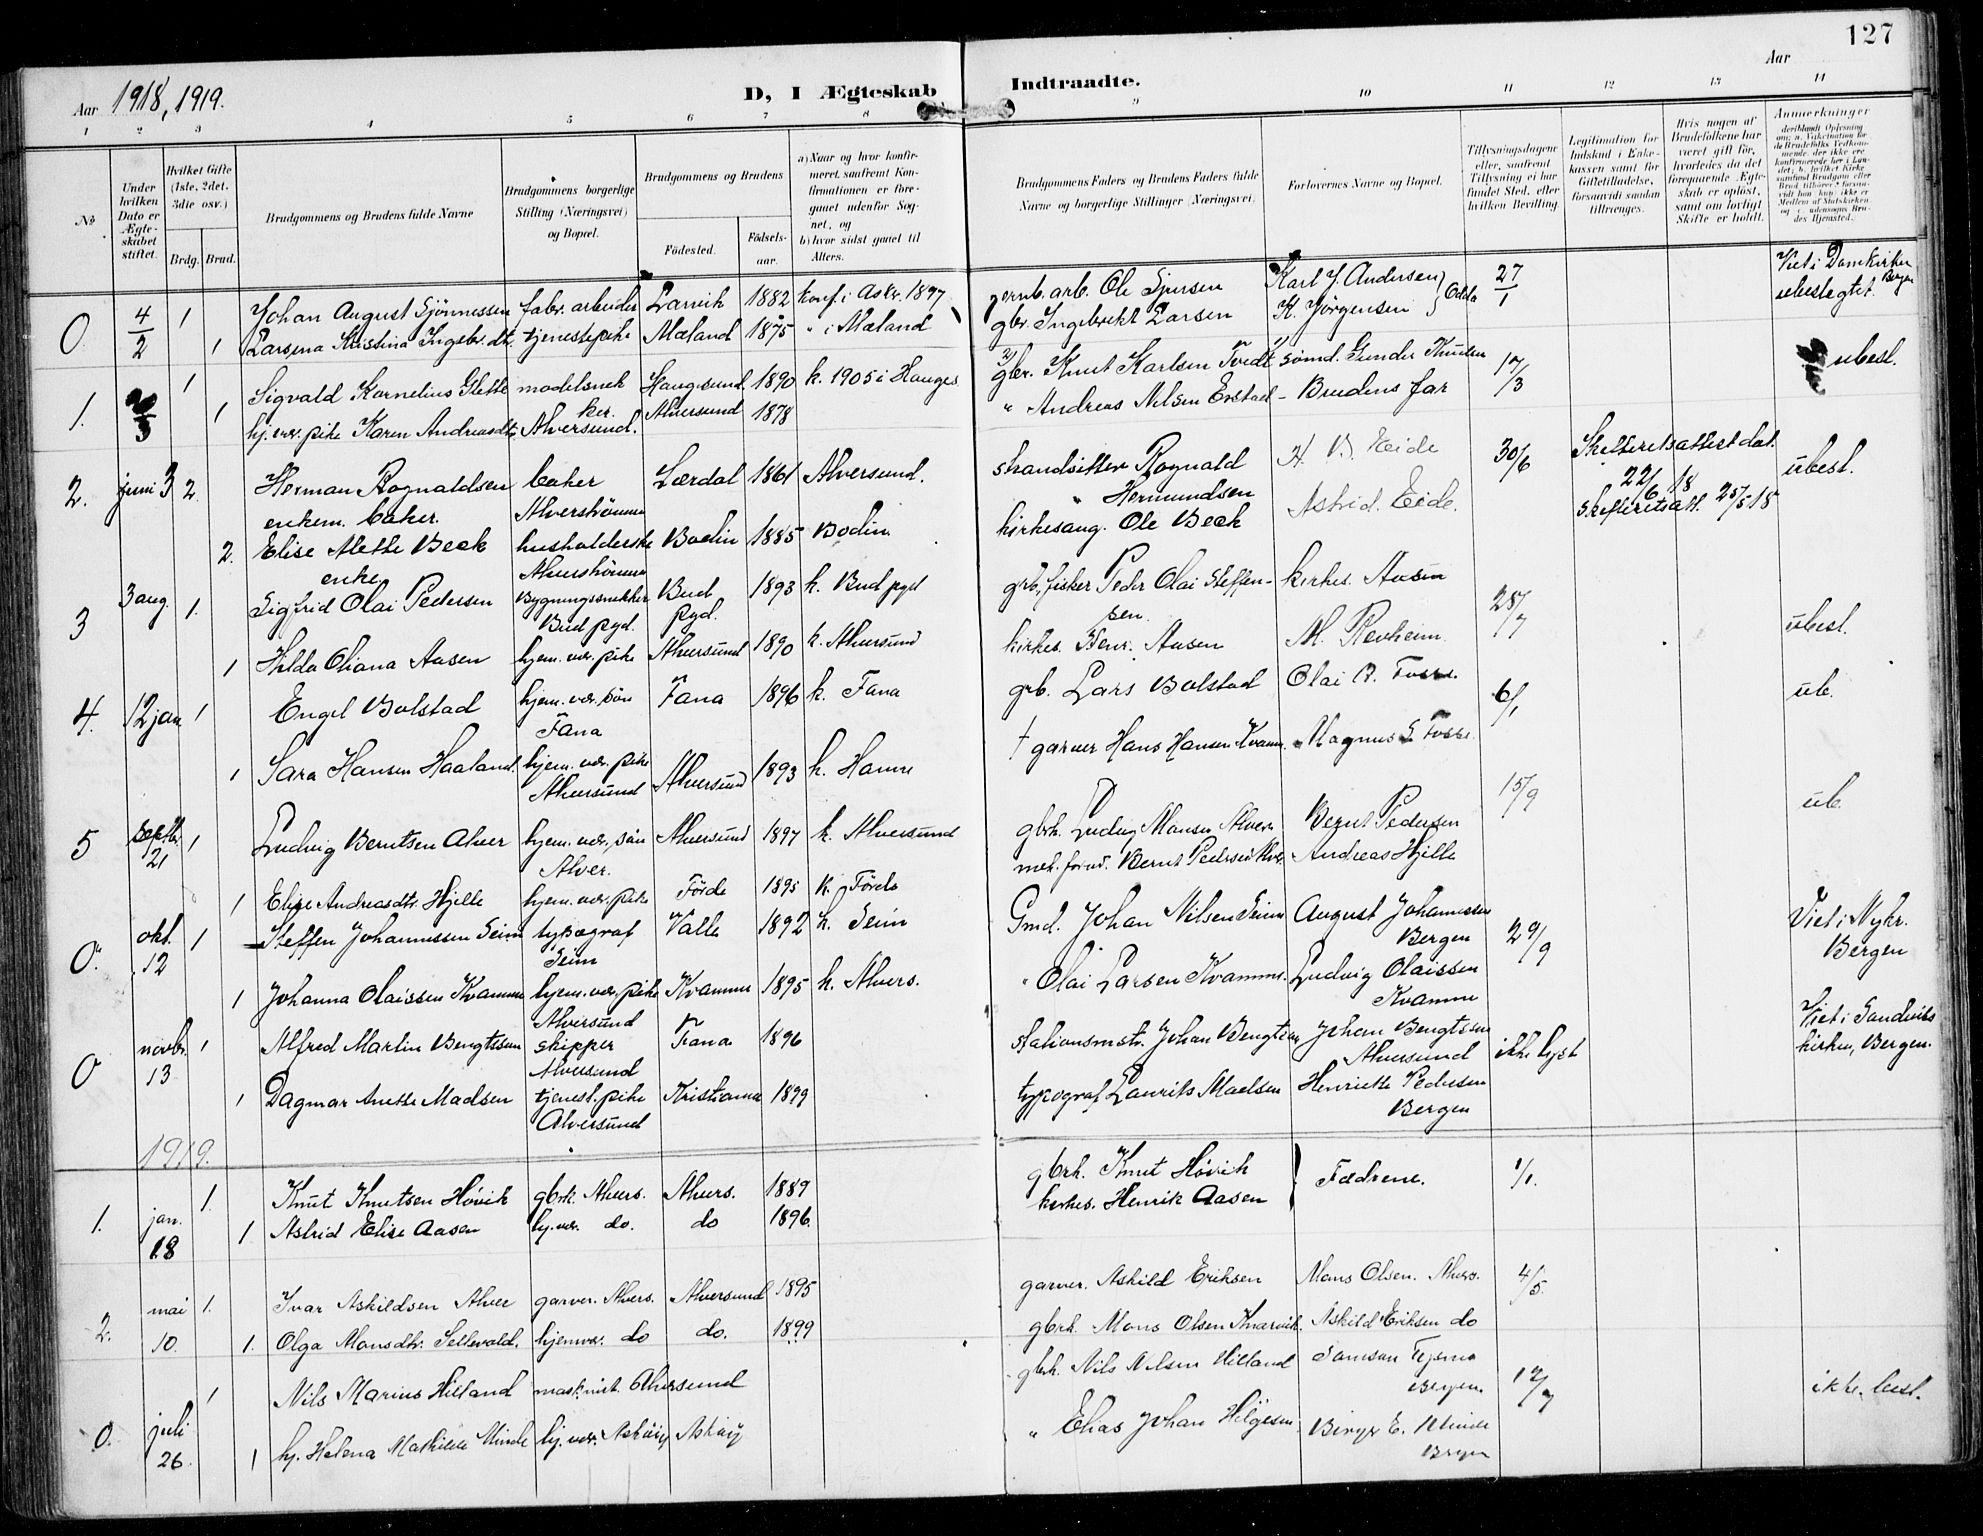 127
Aar 1918, 1919.
D, I Ægteskab Indtraadte.
Aar
1 2 3 4 5 6 7 8 9 10 11 12 13 14
No
Under hvilken Dato er Ægteskabet stiftet.
Hvilket Gifte (1ste, 2det, 3die osv.)
Brdg. Brud.
Brudgommens og Brudens fulde Navne
Brudgommens borgerlige Stilling (Næringsvei) og Bopæl.
Brudgommens og Brudens
Födested.
Födselsaar.
a) Naar og hvor konfirmeret, saafremt Konfirmationen er foregaaet udenfor Sognet, og
b) hvor sidst gaaet til Alters.
Brudgommens Faders og Brudens Faders fulde Navne og borgerlige Stillinger (Næringsvei).
Forlovernes Navne og Bopæl.
Tillysningsdagene eller, saafremt Tillysning ei har fundet Sted, efter hvilken Bevilling
Legitimation for Indskud i Enkekassen samt for Giftetilladelse, forsaavidt saadan tiltrænges.
Hvis nogen af Brudefolkene har været gift før, hvorledes da det foregaaende Ægteskab er opløst, samt om lovligt Skifte er holdt.
Anmerkninger
0 4/2 1 Johan August Sjönnessen fabr. arbeider Larvik 1882 konf. i Asker 1897 jernb. arb. Ole Sjursen Karl J. Andersen 27/1 Viet i Domkirken Bergen
1 Larsina Kristina Ingebr.dt. tjenestepike Mæland 1875 " i Mæland gbr. Ingebrekt Larsen K. Jörgensen Odda ubeslegtet.
1. 1 Sigvald Kornelius Slette modelsnekker. Haugesund 1890 k. 1905 i Hauges. gbr. Knut Karlsen Tvedt sömd. Gunder Knutsen 17/3 ubesl.
1 hj. vær. pike Karen Andreasdt. Alversund. Alversund 1878 " Andreas Nilsen Evstad - Brudens far
2. juni 3 2. Herman Rognaldsen baker Lærdal 1861 Alversund. strandsitter Rognald Hermundsen H. B. Eide 30/6 Skifteretsattest dat. 22/6 18 ubesl.
enkem. baker. Alverströmmen
2. Elise Alette Beck husholderske Bodin 1885 Bodin. kirkesang. Ole Beck Astrid Eide. skifteretsatt. 25/5 18
enke Alverströmmen
3 3 aug. 1. Sigfrid Olai Pedersen Bygningssnekker Bud pgd. Bud pgd. 1893 k. Bud pgd grb. fisker Peder Olai Steffensen kirkes. Aasen 28/7 ubesl.
1 Hilda Oliana Aasen hjem. vær. pike Alversund 1890 k. Alversund kirkes. Henr. Aasen M. Revheim.
4. 12 jan 1 Engel Bolstad hjem. vær. sön Fana Fana 1896 k. Fana grb. Lars Bolstad Olai A. Fosse. 6/1 ub.
1 Sara Hansen Haaland. hjem. vær. pike Alversund Alversund 1893 k. Hamre † garver Hans Hansen Kvamm. Magnus S. Fosse.
5 Septbr. 21 1 Ludvig Berntsen Alver hjem. vær. sön Alver. Alversund 1897 k. Alversund gbrh. Ludvig Monsen Alver Bernt Pedersen 15/9 ub.
mek. formd. Bernt Pedersen Alver Andreas Hjelle
1 Elise Andreasdtr. Hjelle hjem. vær. pike Förde 1895 k. Förde
0. okt. 12 1 Steffen Johannessen Seim typograf Seim Valle 1892 k. Seim Gmd. Johan Nilsen Seim August Johannessen Bergen 29/9 Viet i Nykr. Bergen
1 Johanna Olaissen Kvamme hjem. vær. pike Alversund Kvamme 1895 k. Alvers. " Olai Larsen Kvamme. Ludvig Olaissen Kvamme
0 novbr. 13 1 Alfred Martin Bengtssen skipper Alversund Fana 1896 stationsmstr. Johan Bengtsen Johan Bengtssen Alversund ikke lyst Viet i Sandviks kirken, Bergen.
1 Dagmar Anette Madsen tjenest. pike Alversund Kristiania 1899 typograf Laurits Madsen Henriette Pedersen Bergen
1919.
1. jan. 18 1. Knut Knutsen Hövik gbrk. Alvers. Alvers. 1889 gbrh. Knut Hövik Fædrene. 1/1.
1 Astrid Elise Aasen hj. vær. do. do 1896. kirkes. Henrik Aasen
2. mai 10. 1. Ivar Askildsen Alver garver. Alvers. Alversund 1895 garver. Askild Eriksen Mons Olsen. Alvers. 4/5.
1. Olga Monsdtr. Sellevold. hjemvær. do do. 1899 gbrh. Mons Olsen Knarvik. Askild Eriksen do
0. juli 26 1 Nils Marius Hilland maskinist. Alversund gbrh. Nils Nilsen Hilland Samson Bergen. 12/7 ikke besl.
1 hj. Helena Mathilde Minde hj. vær. Asköy Asköy " Elias Johan Birger E. Minde Bergen